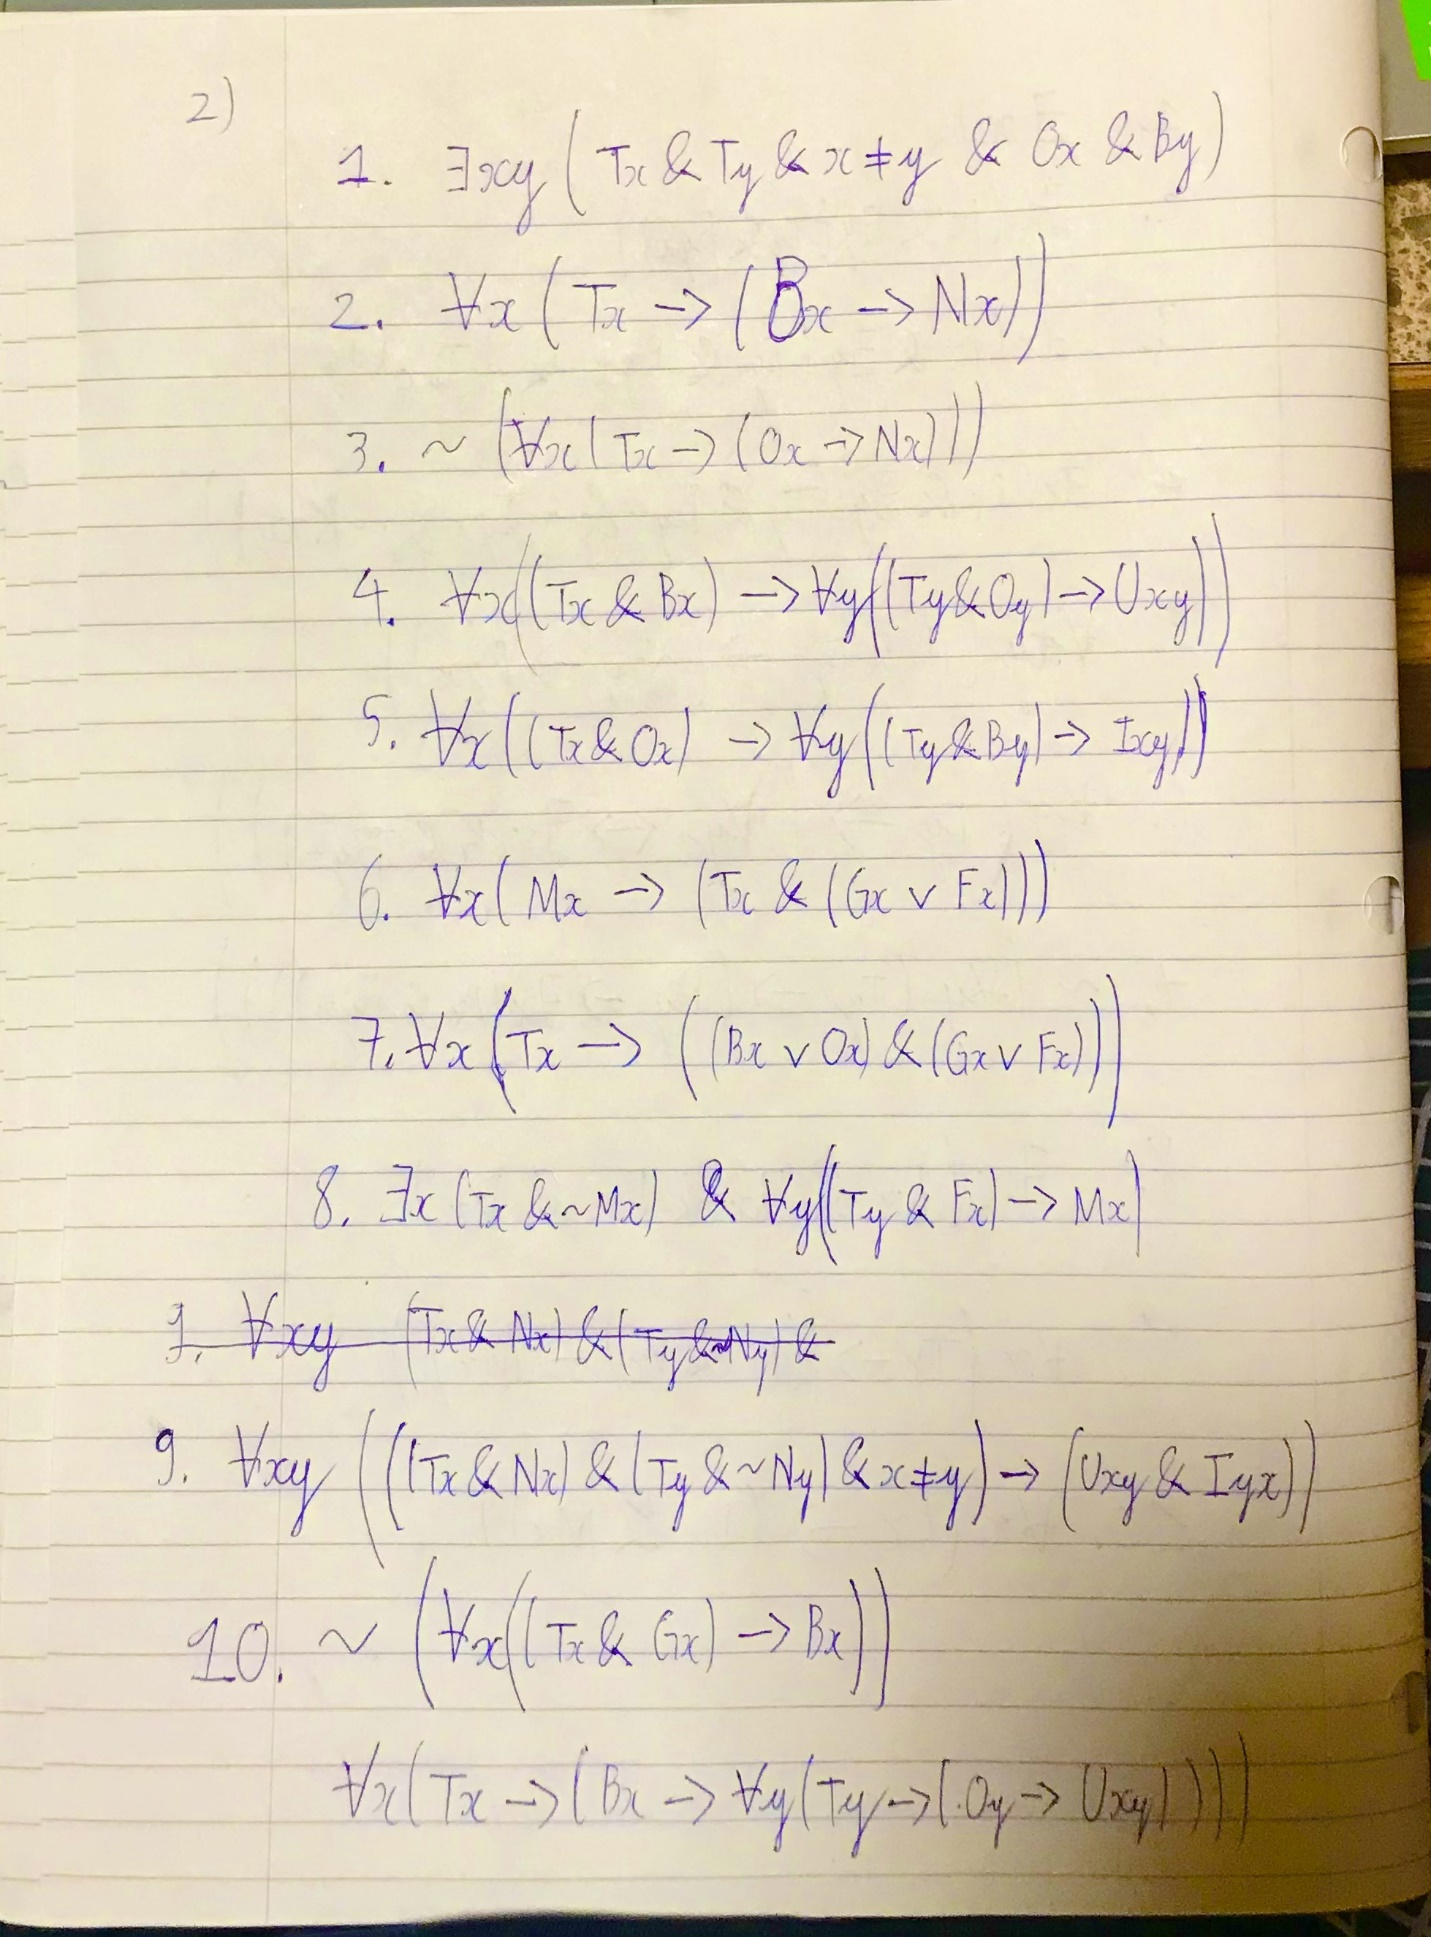 2)
1. ∃xy (Tx & Ty & x≠y & Ox & By)
2. ∀x (Tx → (Bx → Nx))
3. ~ (∀x (Tx → (Ox → Nx)))
4. ∀x((Tx & Bx) → ∀y((Ty & Oy) → Uxy))
5. ∀x((Tx & Ox) → ∀y((Ty & By) → Ixy))
6. ∀x( Mx → (Tx & (Gx ∨ Fx)))
7. ∀x(Tx → ((Bx ∨ Ox) & (Gx ∨ Fx)))
8. ∃x (Tx & ~Mx) & ∀y((Ty & Fx) → Mx)
9. ∀xy (Tx & Nx) & (Ty & ~Ny) &
9. ∀xy (((Tx & Nx) & (Ty & ~Ny) & x≠y) → (Uxy & Iyx))
10. ~ (∀x((Tx & Gx) → Bx))
∀x(Tx → (Bx → ∀y(Ty → (Oy → Uxy))))